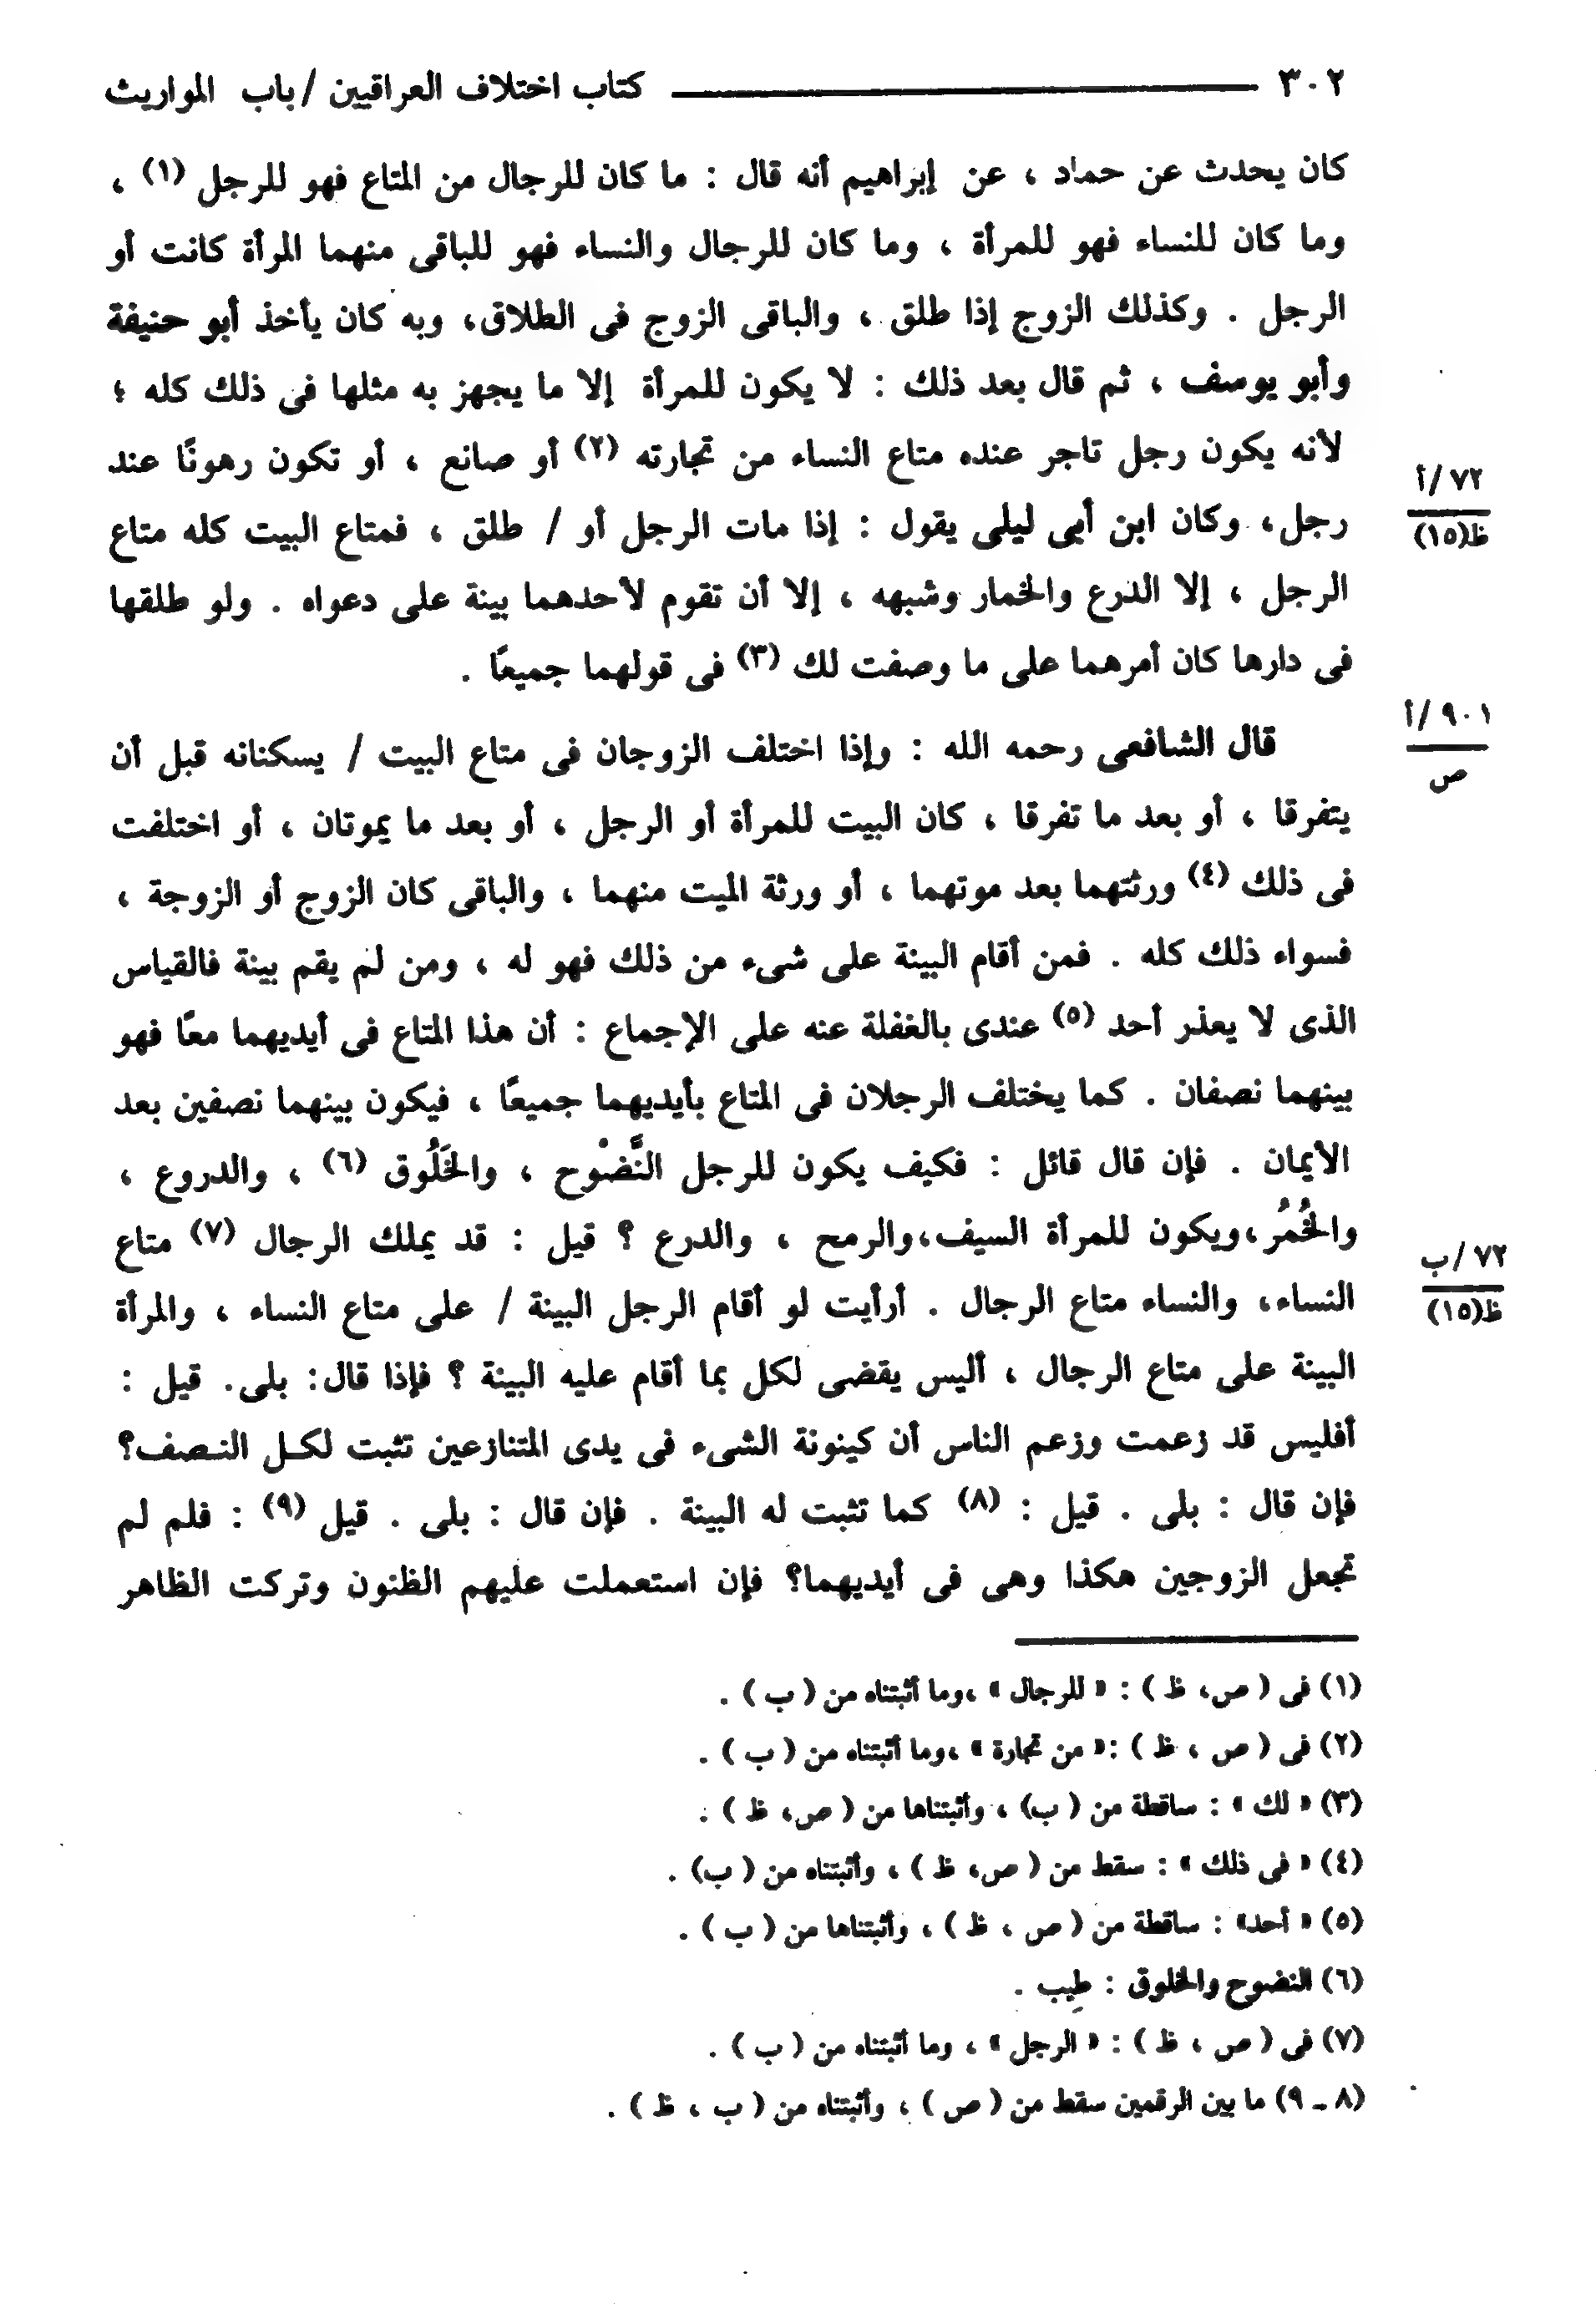 ٣٠٢ كتاب اختلاف العراقيين / باب المواريث
كان يحدث عن حماد ، عن إبراهيم أنه قال : ما كان للرجال من المتاع فهو للرجل (١) ،
وما كان للنساء فهو للمرأة ، وما كان للرجال والنساء فهو للباقى منهما المرأة كانت أو
الرجل . وكذلك الزوج إذا طلق ، والباقى الزوج فى الطلاق، وبه كان يأخذ أبو حنيفة
وأبو يوسف ، ثم قال بعد ذلك : لا يكون للمرأة إلا ما يجهز به مثلها فى ذلك كله ؛
لأنه يكون رجل تاجر عنده متاع النساء من تجارته (٢) أو صانع ، أو تكون رهونًا عند
٧٢ /أ
ظ(١٥)
رجل، وكان ابن أبى ليلى يقول : إذا مات الرجل أو / طلق ، فمتاع البيت كله متاع
الرجل ، إلا الدرع والخمار وشبهه ، إلا أن تقوم لأحدهما بينة على دعواه . ولو طلقها
فى دارها كان أمرهما على ما وصفت لك (٣) فى قولهما جميعًا .
٩٠١ /أ
ص
قال الشافعى رحمه الله : وإذا اختلف الزوجان فى متاع البيت / يسكنانه قبل أن
يتفرقا ، أو بعد ما تفرقا ، كان البيت للمرأة أو الرجل ، أو بعد ما يموتان ، أو اختلفت
فى ذلك (٤) ورثتهما بعد موتهما ، أو ورثة الميت منهما ، والباقى كان الزوج أو الزوجة ،
فسواء ذلك كله . فمن أقام البينة على شىء من ذلك فهو له ، ومن لم يقم بينة فالقياس
الذى لا يعذر أحد (٥) عندى بالغفلة عنه على الإجماع : أن هذا المتاع فى أيديهما معًا فهو
بينهما نصفان . كما يختلف الرجلان فى المتاع بأيديهما جميعًا ، فيكون بينهما نصفين بعد
الأيمان . فإن قال قائل : فكيف يكون للرجل النَّضْوح ، والخَلُوق (٦) ، والدروع ،
والخُمُر،ويكون للمرأة السيف،والرمح ، والدرع ؟ قيل : قد يملك الرجال (٧) متاع
٧٢ /ب
ظ(١٥)
النساء، والنساء متاع الرجال . أرأيت لو أقام الرجل البينة / على متاع النساء ، والمرأة
البينة على متاع الرجال ، أليس يقضى لكل بما أقام عليه البينة ؟ فإذا قال: بلى. قيل :
أفليس قد زعمت وزعم الناس أن كينونة الشىء فى يدى المتنازعين تثبت لكـل النـصف؟
فإن قال : بلى . قيل : (٨) كما تثبت له البينة . فإن قال : بلى . قيل (٩) : فلم لم
تجعل الزوجين هكذا وهى فى أيديهما؟ فإن استعملت عليهم الظنون وتركت الظاهر
(١) فى ( ص، ظ ) : « للرجال » ،وما أثبتناه من ( ب ) .
(٢) فى ( ص ، ظ ) :« من تجارة » ،وما أثبتناه من ( ب ) .
(٣) « لك » : ساقطة من ( ب) ، وأثبتناها من ( ص، ظ ) .
(٤) « فى ذلك » : سقط من ( ص، ظ ) ، وأثبتناه من ( ب) .
(٥) « أحد» : ساقطة من ( ص ، ظ ) ، وأثبتناها من ( ب ) .
(٦) النضوح والخلوق : طِيب .
(٧) فى ( ص ، ظ ) : « الرجل » ، وما أثبتناه من ( ب ) .
(٨ ـ ٩) ما بين الرقمين سقط من ( ص ) ، وأثبتناه من ( ب ، ظ ) .